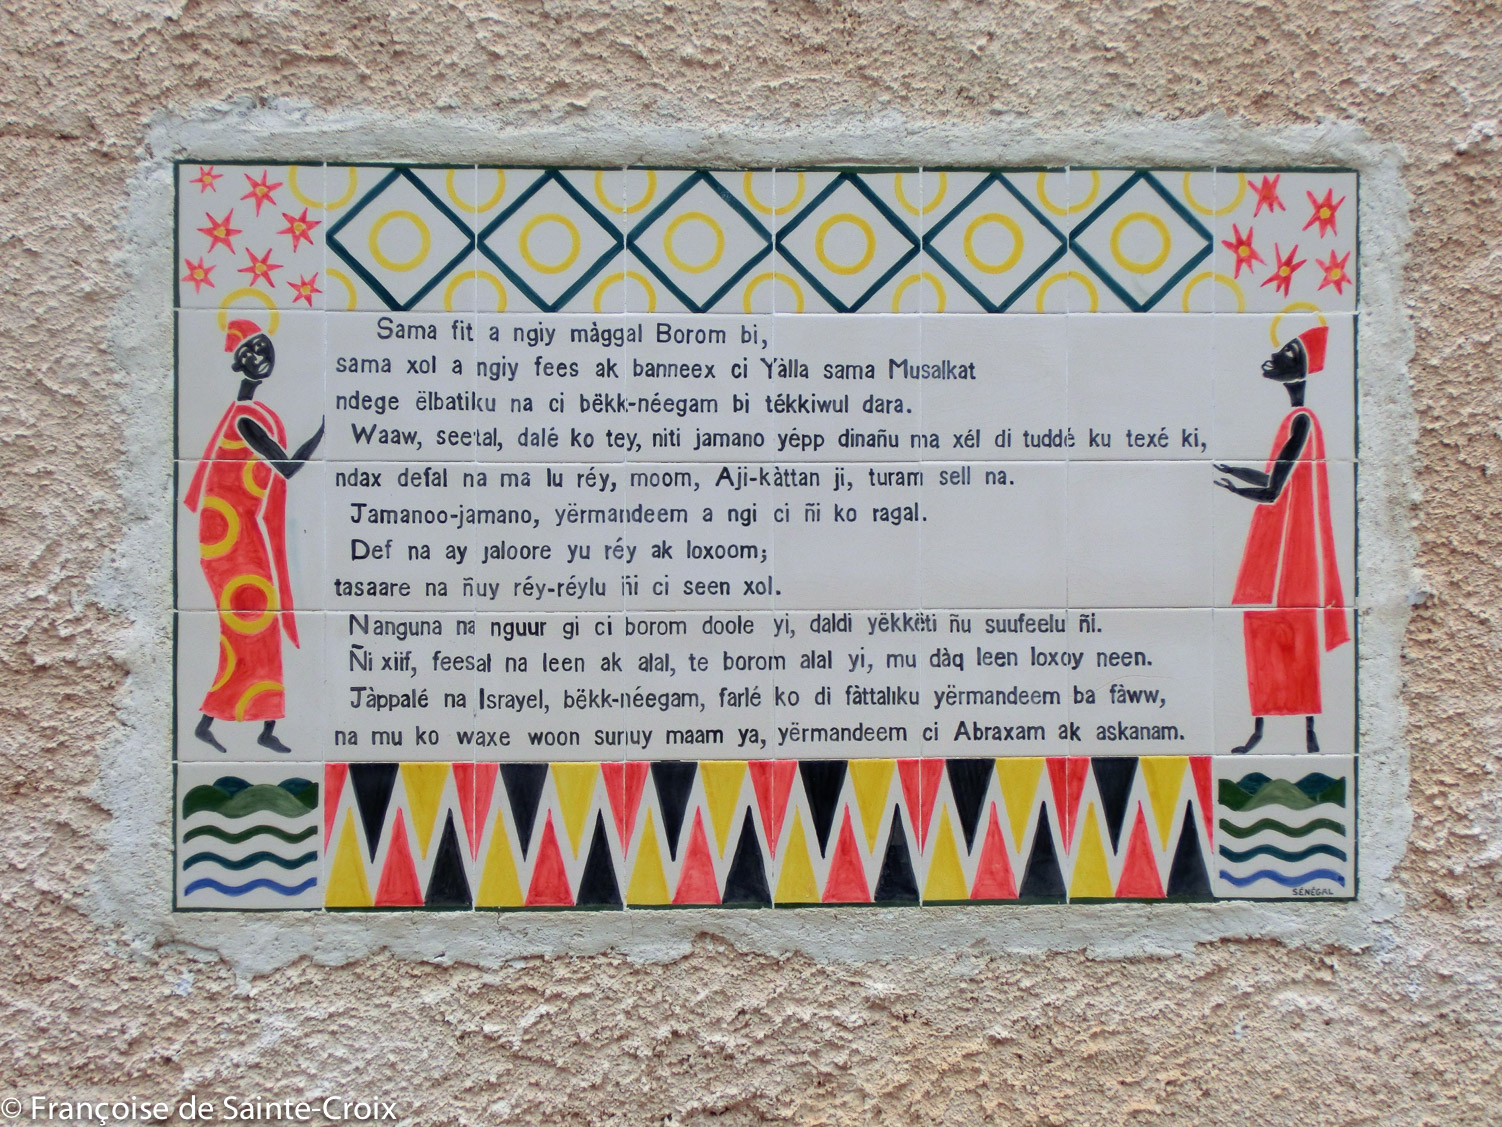 Sama fit a ngiy màggal Borom bi,
sama xol a ngiy fees ak banneex ci Yàlla sama Musalkat
ndege ëlbatiku na ci bëkk-néegam bi tékkiwul dara.
Waaw, seetal, dalé ko tey, niti jamano yépp dinañu ma xél di tuddé ku texé ki,
ndax defal na ma lu réy, moom, Aji-kàttan ji, turam sell na.
Jamanoo-jamano, yërmandeem a ngi ci ñi ko ragal.
Def na ay jaloore yu réy ak loxoom;
tasaare na ñuy réy-réylu ñi ci seen xol.
Nanguna na nguur gi ci borom doole yi, daldi yëkkëti ñu suufeelu ñi.
Ñi xiif, feesal na leen ak alal, te borom alal yi, mu dàq leen loxoy neen.
Jàppalé na Israyel, bëkk-néegam, farlé ko di fàttaliku yërmandeem ba fàww,
na mu ko waxe woon sunuy maam ya, yërmandeem ci Abraxam ak askanam.
SÉNÉGAL
© Françoise de Sainte-Croix